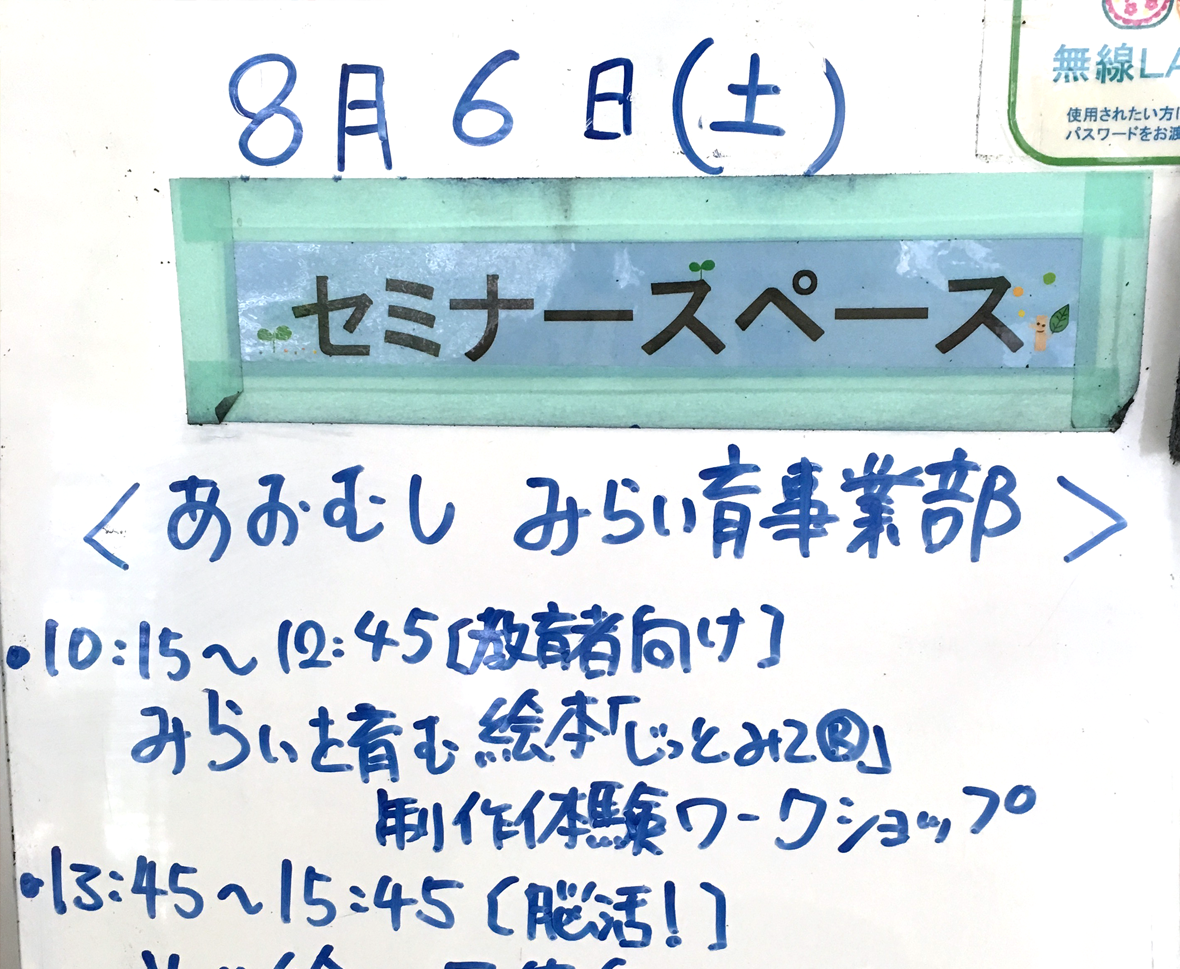 8月6日(土)
無線LA
使用されたい方
パスワードをお渡
セミナースペース
<あおむし みらい育事業部>
・10:15〜12:45[教育者向け]
みらいを育む絵本「じっとみて®」
制作体験ワークショップ
・13:45〜15:45[脳活!]